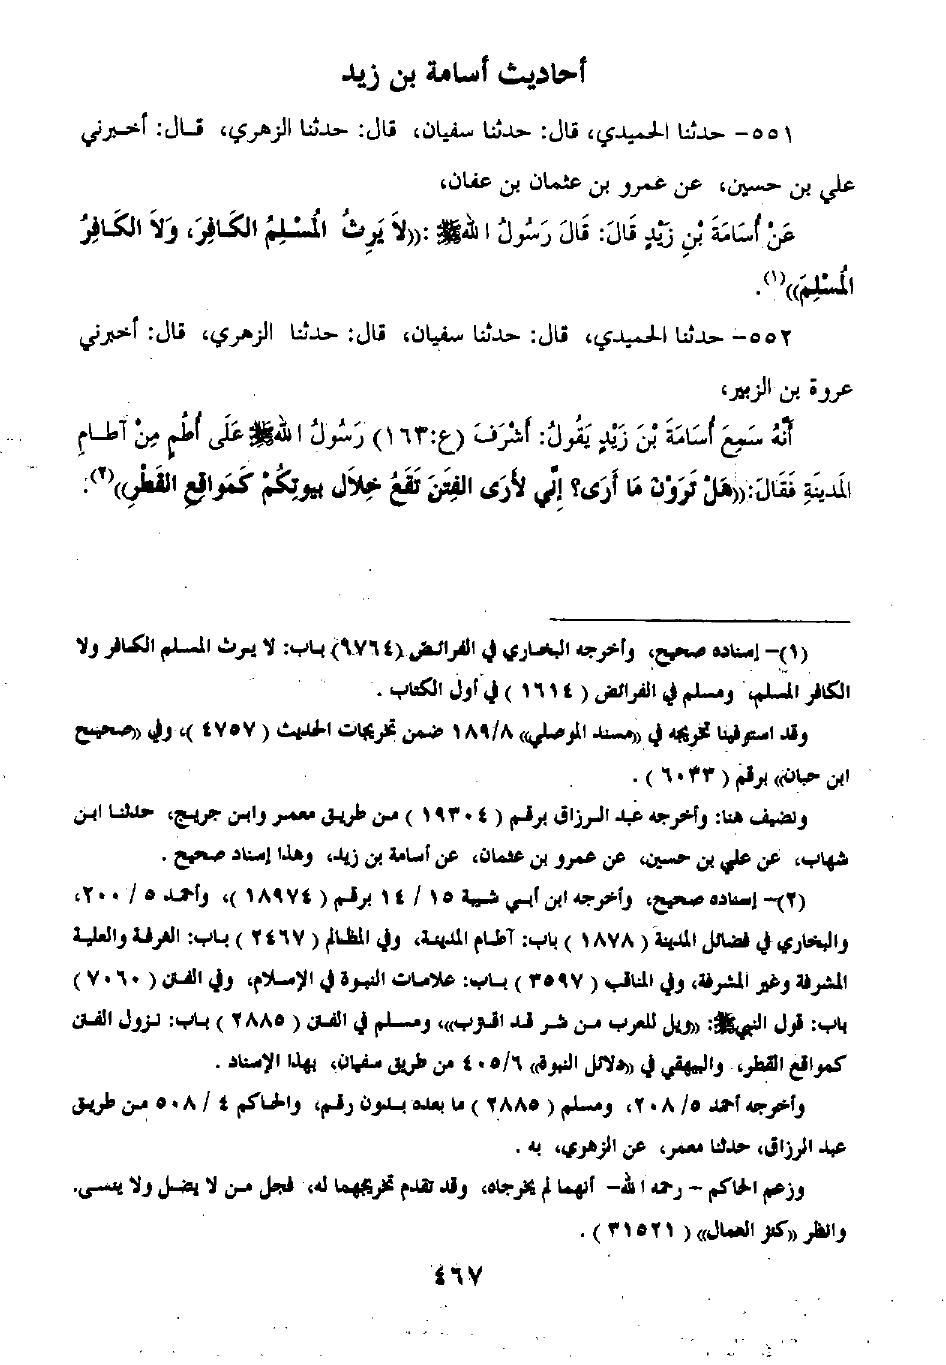 أحاديث أسامة بن زيد
٥٥١- حدثنا الحميدي، قال: حدثنا سفيان، قال: حدثنا الزهري، قال: أخبرني
علي بن حسين، عن عمرو بن عثمان بن عفان،
عَنْ أُسَامَةَ بْنِ زَيْدٍ قَالَ: قَالَ رَسُولُ اللهِ ﷺ :((لاَ يَرِثُ الْمُسْلِمُ الكَافِرَ، وَلاَ الكَافِرُ
الْمُسْلِمَ))(١).
٥٥٢- حدثنا الحميدي، قال: حدثنا سفيان، قال: حدثنا الزهري، قال: أخبرني
عروة بن الزبير،
أَنَّهُ سَمِعَ أُسَامَةَ بْنَ زَيْدٍ يَقُولُ: أَشْرَفَ (ع:١٦٣) رَسُولُ اللهِ ﷺ عَلَى أُطُمٍ مِنْ آطَامِ
الْمَدينَةِ فَقَالَ:((هَلْ تَرَوْنَ مَا أَرَى؟ إِنِّي لأَرَى الفِتَنَ تَقَعُ خِلاَل بيوتِكُمْ كَمَواقِعِ القَطْرِ))(٢).
(١)- إسناده صحيح، وأخرجه البخاري في الفرائض (٦٧٦٤) باب: لا يرث المسلم الكافر ولا
الكافر المسلم، ومسلم في الفرائض ( ١٦١٤ ) في أول الكتاب .
وقد استوفينا تخريجه في ((مسند الموصلي)) ١٨٩/٨ ضمن تخريجات الحديث ( ٤٧٥٧ )، وفي ((صحيح
ابن حبان)) برقم ( ٦٠٣٣ ) .
ونضيف هنا: وأخرجه عبد الرزاق برقم ( ١٩٣٠٤ ) من طريق معمر وابن جريج، حدثنا ابن
شهاب، عن علي بن حسين، عن عمرو بن عثمان، عن أسامة بن زيد، وهذا إسناد صحيح .
(٢)- إسناده صحيح، وأخرجه ابن أبي شيبة ١٥ / ١٤ برقم ( ١٨٩٧٤ )، وأحمد ٥ / ٢٠٠،
والبخاري في فضائل المدينة ( ١٨٧٨ ) باب: آطام المدينة، وفي المظالم ( ٢٤٦٧ ) باب: الغرفة والعلية
المشرفة وغير المشرفة، وفي المناقب ( ٣٥٩٧ ) باب: علامات النبوة في الإسلام، وفي الفتن ( ٧٠٦٠ )
باب: قول النبي ﷺ: ((ويل للعرب من شر قد اقترب))، ومسلم في الفتن ( ٢٨٨٥ ) باب: نزول الفتن
كمواقع القطر، والبيهقي في ((دلائل النبوة)) ٤٠٥/٦ من طريق سفيان، بهذا الإسناد .
وأخرجه أحمد ٥/ ٢٠٨، ومسلم ( ٢٨٨٥ ) ما بعده بدون رقم، والحاكم ٤ / ٥٠٨ من طريق
عبد الرزاق، حدثنا معمر، عن الزهري، به .
وزعم الحاكم - رحمه الله- أنهما لم يخرجاه، وقد تقدم تخريجهما له، فجل من لا يضل ولا ينسى.
وانظر ((كنز العمال)) ( ٣١٥٢١ ) .
٤٦٧